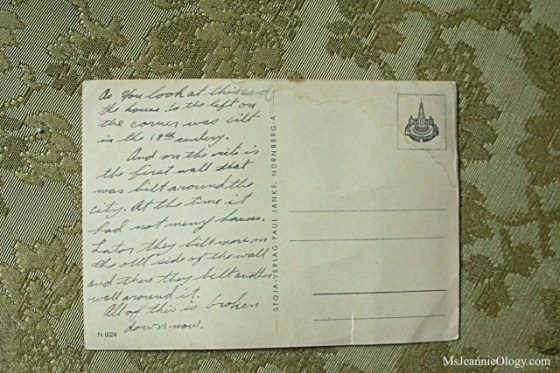 As You look at this card
the house to the left on
the corner was bilt
in the 18th century.
And on the rite is
the first wall that
was bilt around the
city. At the time it
had not meny houses.
Lator they bilt more on
the side of the wall
and there they bilt another
wall around it.
All of this is broken
down now.
N 1024
STOJA-VERLAG PAUL JANKE, NÜRNBERG-A
MsJeannieOlogy.com